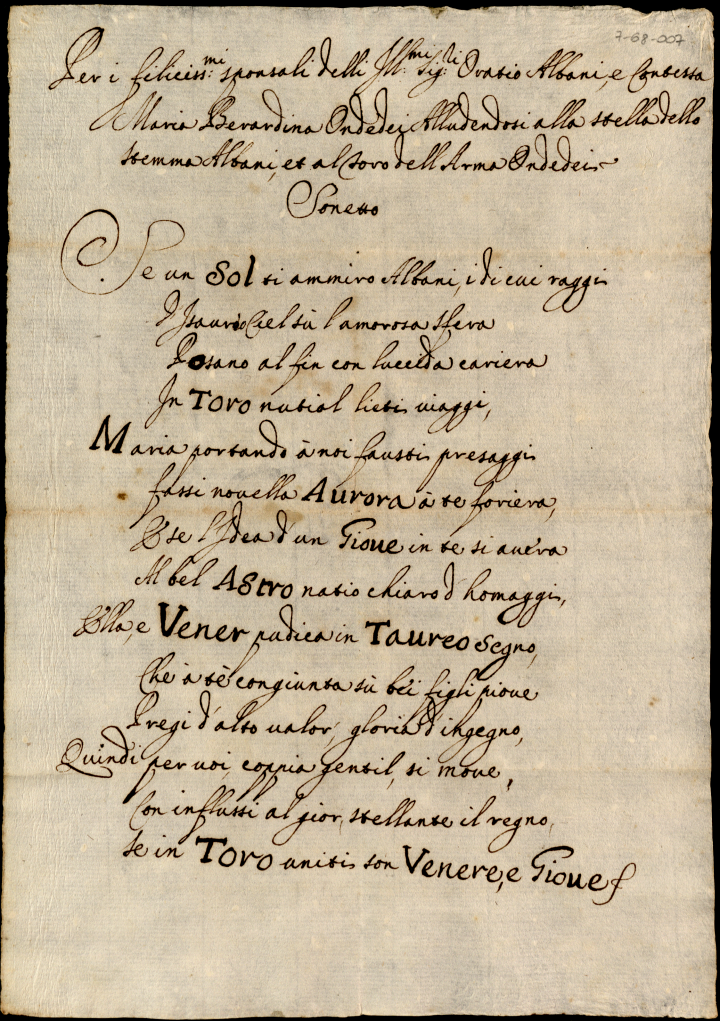 7-68-007
Per i felicissmi sponsali delli Illmi Sigri Oratio Albani, e Contessa
Maria Berardina Ondedei Alludendosi alla stella dello
stemma Albani, et al Toro dell'Arma Ondedei
Sonetto
Se un Sol ti ammiro Albani, i di cui raggi
D'Isauro Ciel sù l'amorosa sfera
Posano al fin con lucida cariera
In Toro nutial lieti viaggi,
Maria portando à noi fausti presaggi
fassi novella Aurora à te foriera,
E se l'Idea d'un Gioue in te si auera
Al bel Astro natio chiaro d'homaggi,
Ella, e Vener pudica in Taureo segno,
Che à tè congiunta sù bei figli pioue
Pregi d'alto ualor, gloria d'ingegno,
Quindi per uoi, coppia gentil, si moue,
Con influssi al gior, stellante il regno,
se in Toro uniti son Venere, e Gioue